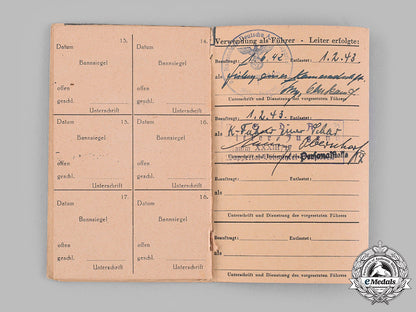 13. 14.
Datum Datum
Bannsiegel Bannsiegel
offen offen
geschl. geschl.
Unterschrift Unterschrift
15. 16.
Datum Datum
Bannsiegel Bannsiegel
offen offen
geschl. geschl.
Unterschrift Unterschrift
17. 18.
Datum Datum
Bannsiegel Bannsiegel
offen offen
geschl. geschl.
Unterschrift Unterschrift
Verwendung als Führer - Leiter erfolgte:
Beauftragt: 42 Entlastet: 1.2.43
als
Unterschrift und Dienstrang des vorgesetzten Führers
Beauftragt: 1.2.43. Entlastet:
als K.-Führer einer Schar
Personalstelle
Beauftragt: Entlastet:
als
Unterschrift und Dienstrang des vorgesetzten Führers
Beauftragt: Entlastet:
als
Unterschrift und Dienstrang des vorgesetzten Führers
eMedals